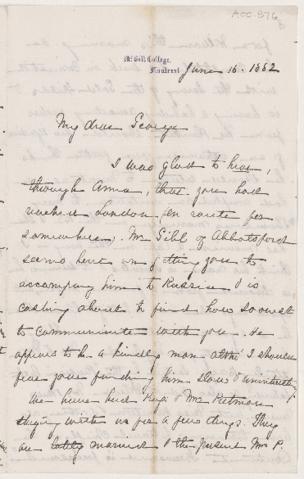 ACC-876
McGill College,
Montreal June 16. 1882
My dear George
I was glad to hear,
through Anna, that you had
reached London, en route for
somewhere. Mr Gibb of Abbotsford
seems bent on getting you to
accompany him to Russia & is
casting about to find how soonest
to communicate with you. He
appears to be a kindly man altho' I should
fear your finding him slow &
We have had Prof & Mrs
staying with us for a few days. They
are lately married & the present Mrs P.